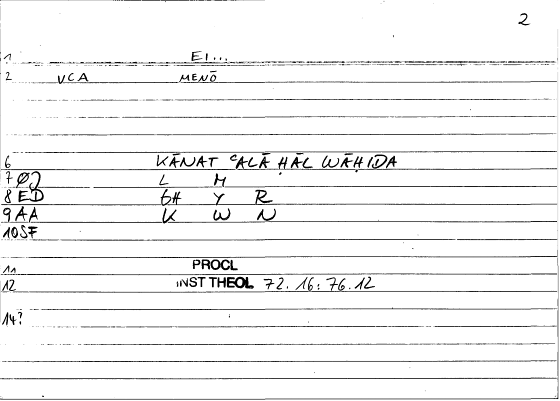 2
1 EI...
2 VCA MENŌ
6 KĀNAT ʿALĀ ḤĀL WĀḤIDA
7 ØJ L M
8 ED GH Y R
9 AA K W N
10 SF
11 PROCL
12 INST THEOL 72.16: 76.12
14?